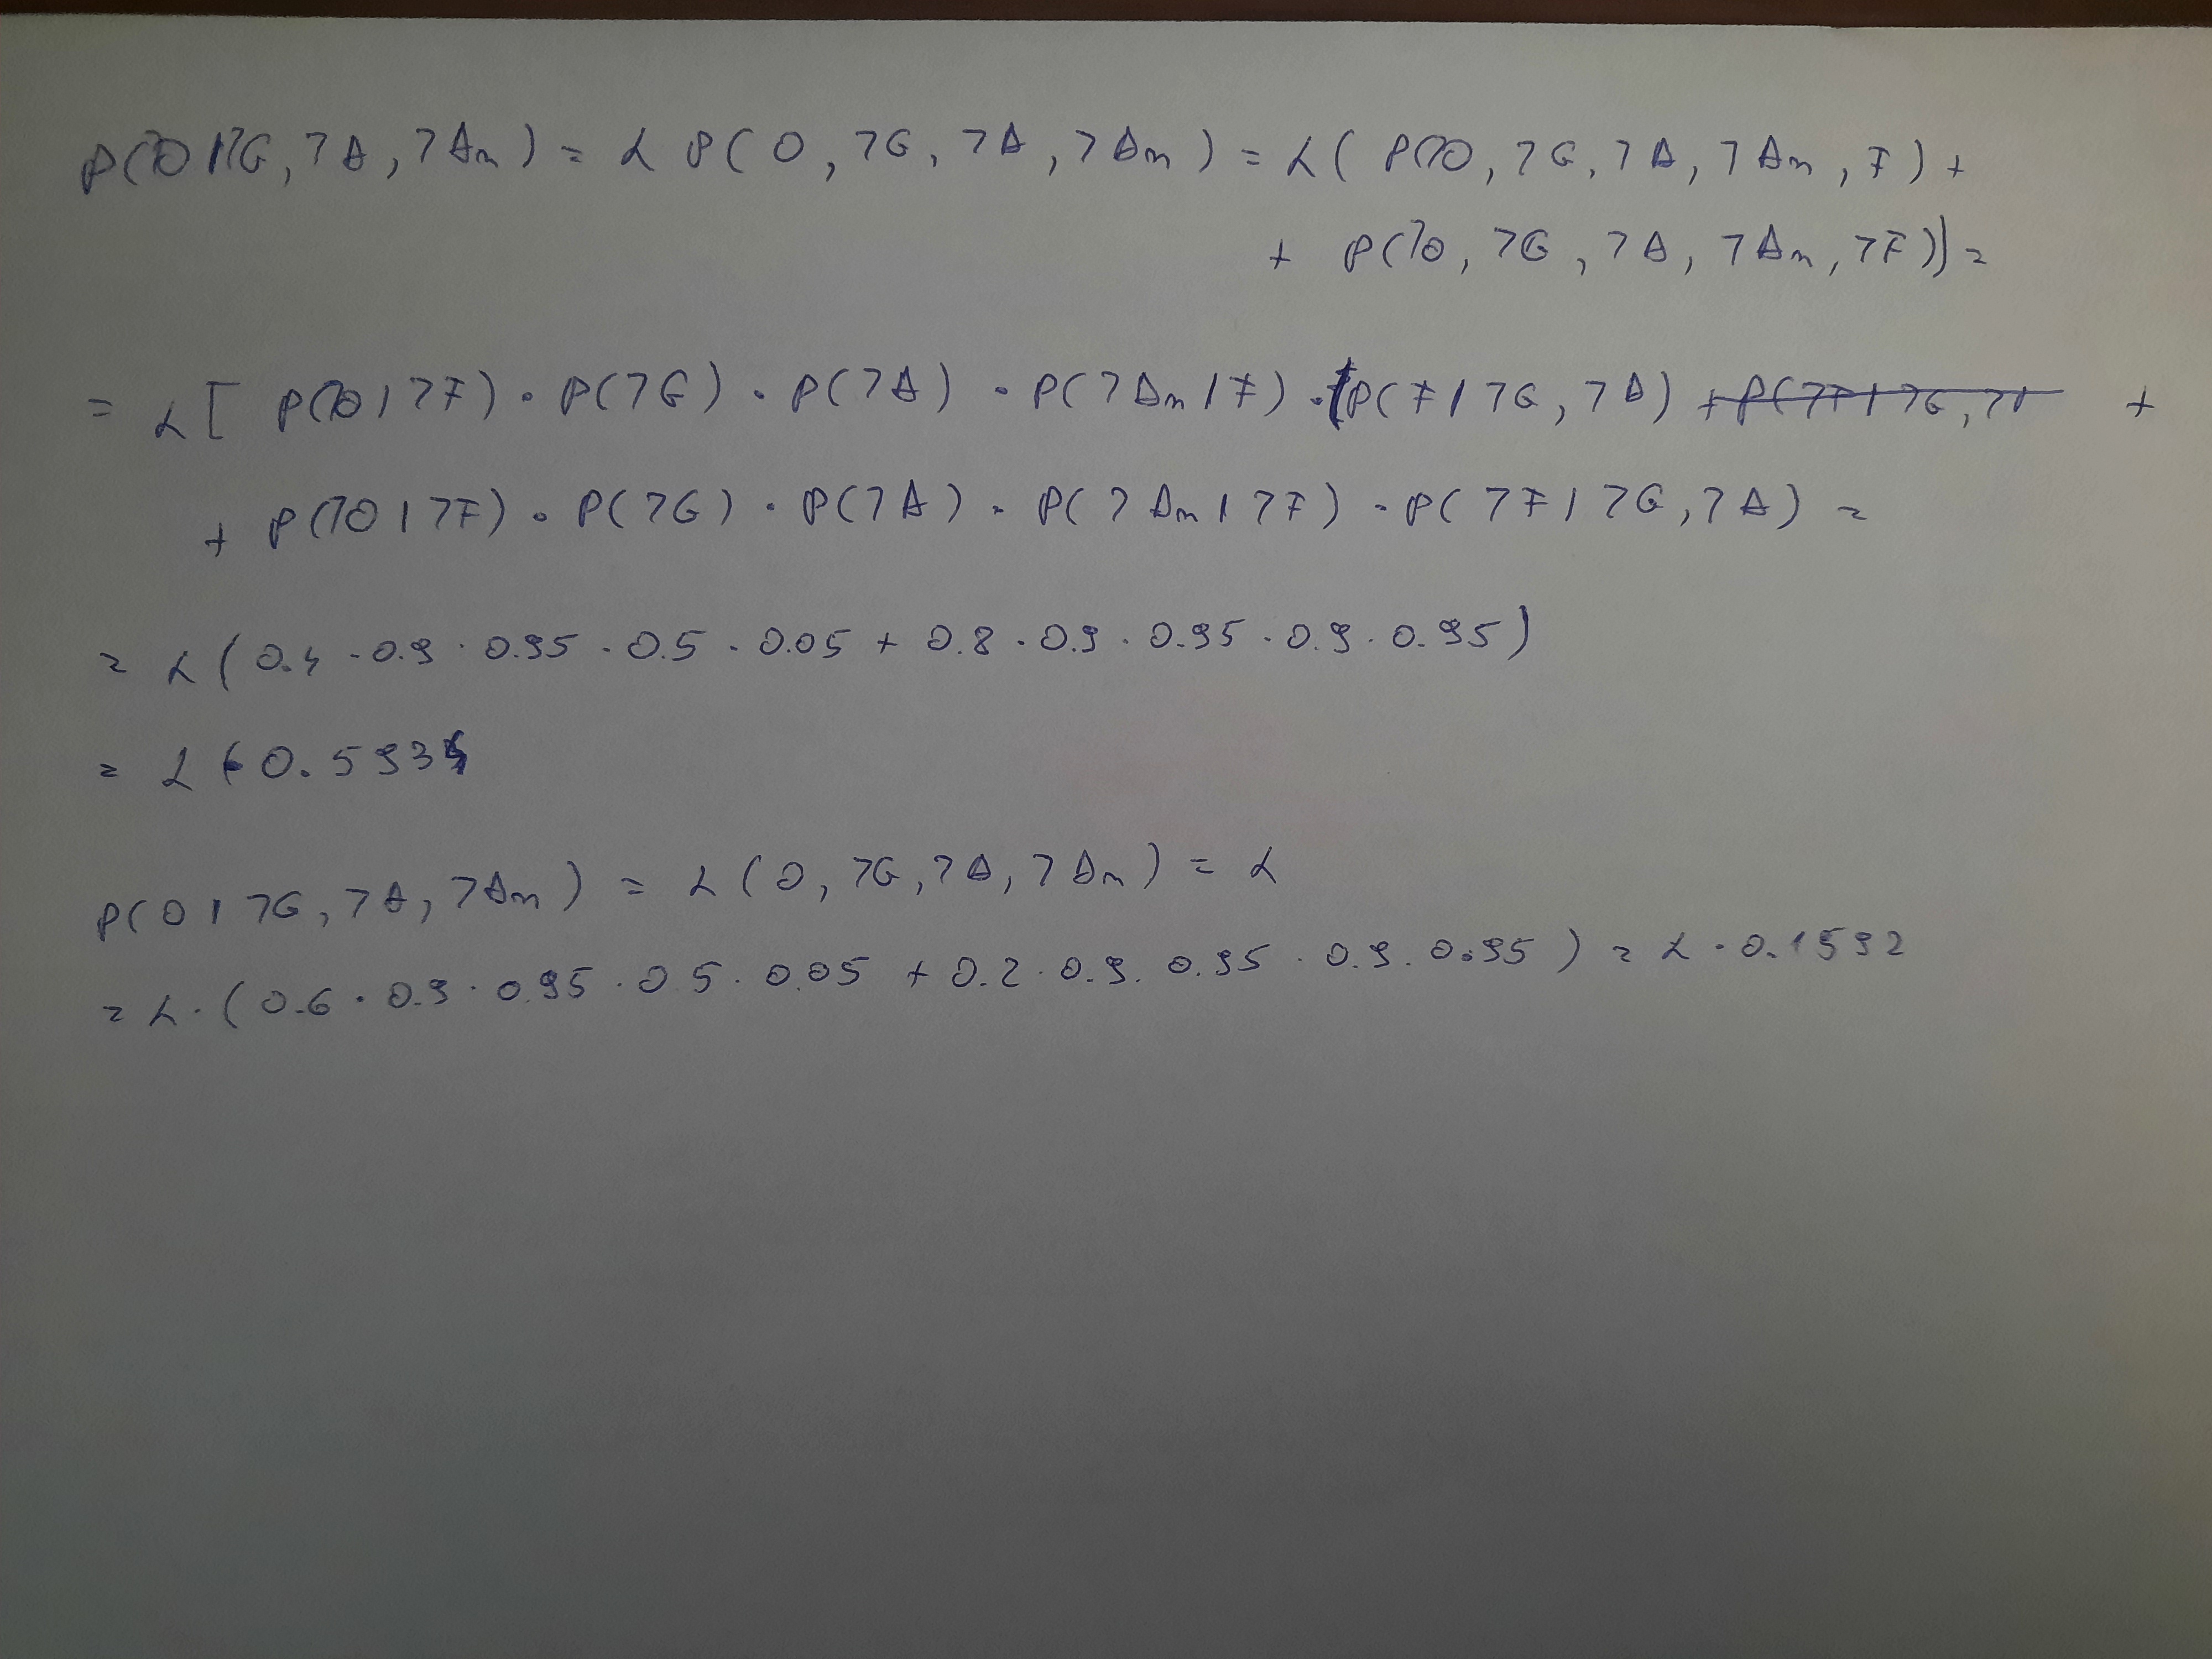 P(¬O|¬G,¬A,¬Am) = α P(O,¬G,¬A,¬Am) = α( P(¬O,¬G,¬A,¬Am,F) +
+ P(¬O,¬G,¬A,¬Am,¬F)) =
= α[ P(¬O|¬F) · P(¬G) · P(¬A) · P(¬Am|F) · P(F|¬G,¬A) +
+ P(¬O|¬F) · P(¬G) · P(¬A) · P(¬Am|¬F) · P(¬F|¬G,¬A) =
= α( 0.4 · 0.9 · 0.95 · 0.5 · 0.05 + 0.8 · 0.9 · 0.95 · 0.9 · 0.95)
= α
P(O|¬G,¬A,¬Am) = α(O,¬G,¬A,¬Am) = α
= α · (0.6 · 0.9 · 0.95 · 0.5 · 0.05 + 0.2 · 0.9 · 0.95 · 0.9 · 0.95) = α · 0.1592